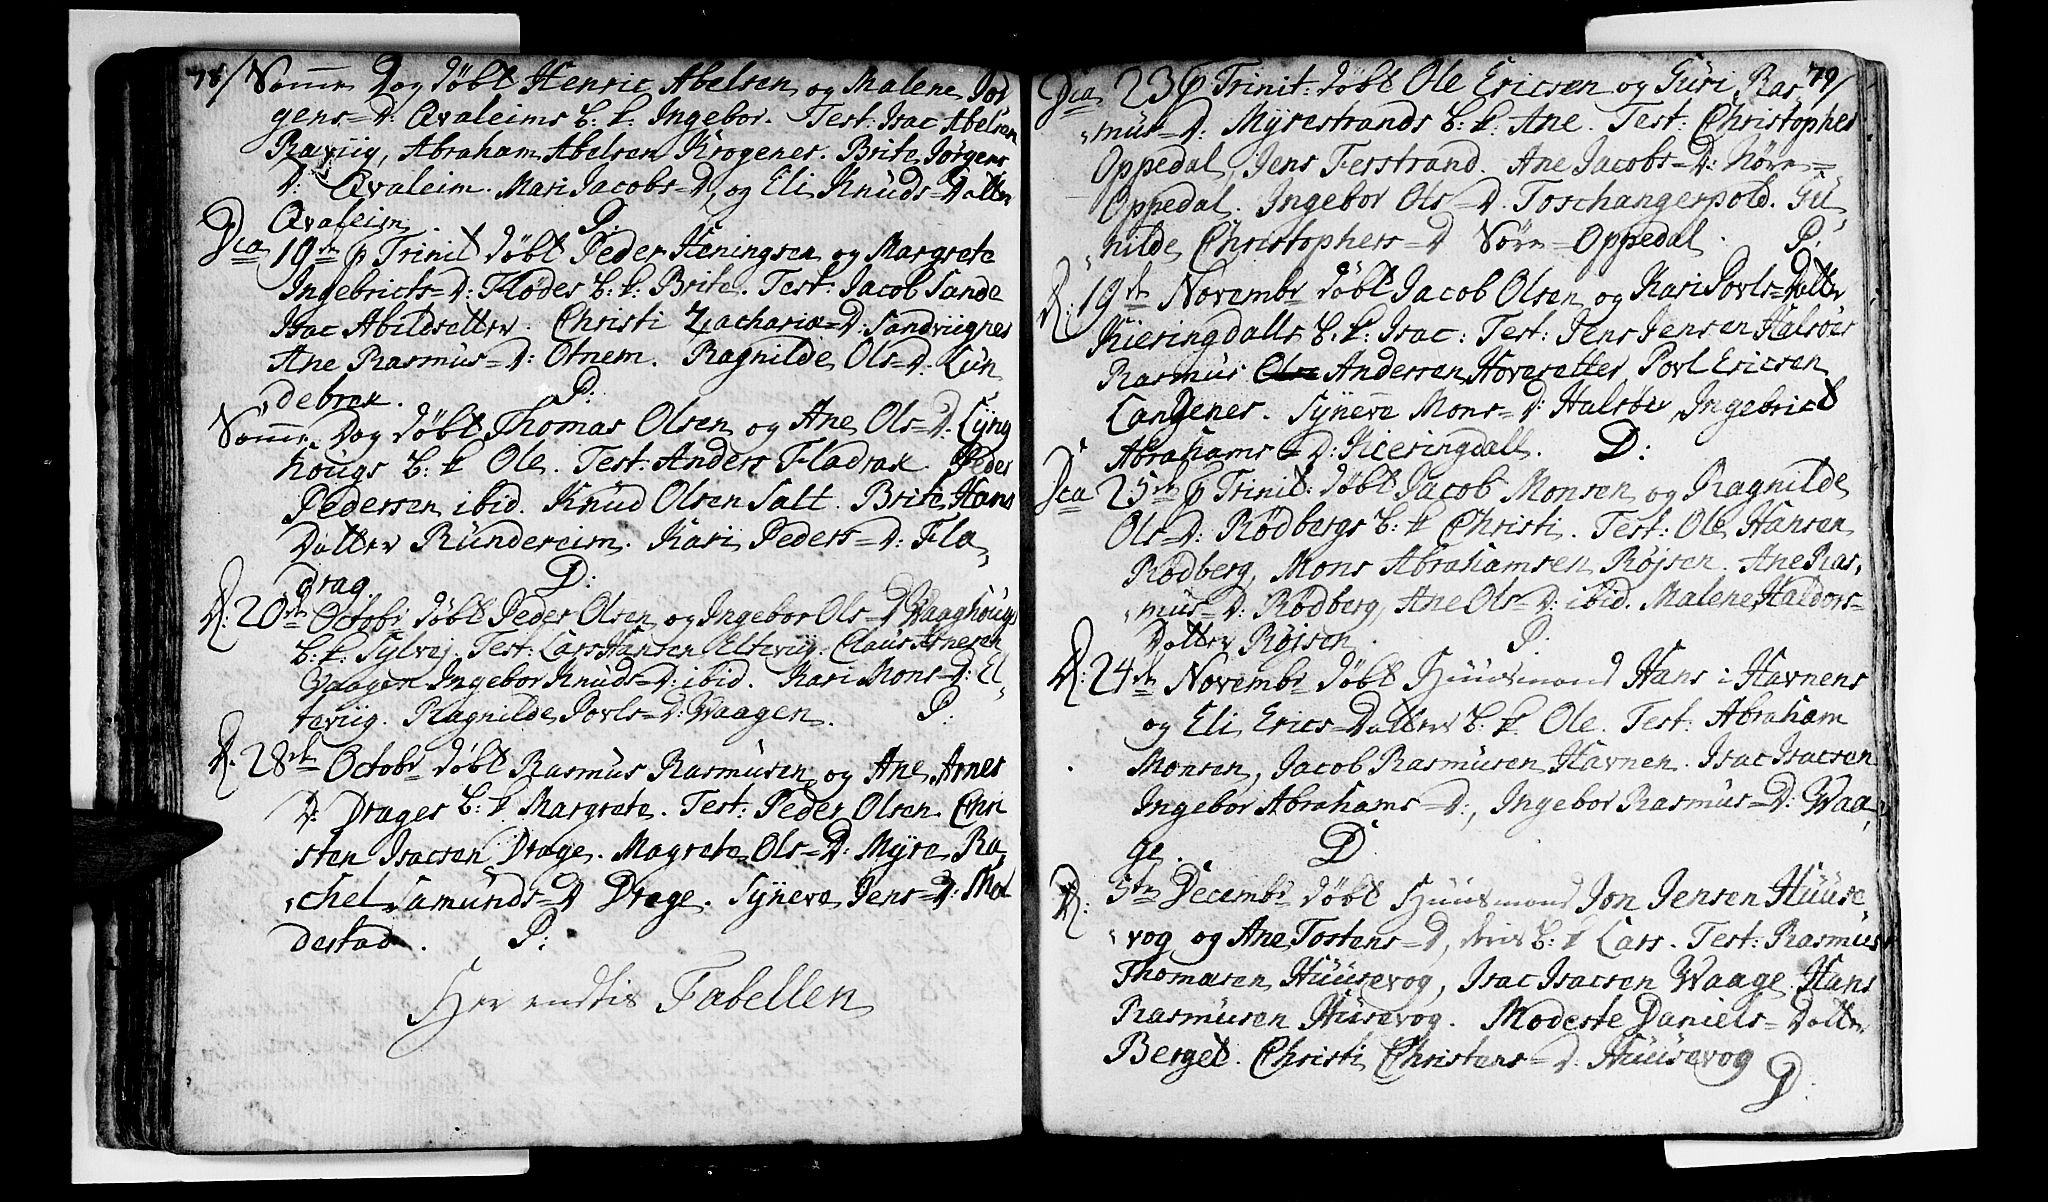 78/ Samme Dag døbt Henric Abelsen og Malene Jør
gens=D: Qvaleims B: k. Ingebor. Test: Isac Abelsen
Raviig, Abraham Abelsen Krogenes. Brite Jørgens
D: Qvaleim. Mari Jacobs=D, og Eli Knuds=Datter
Qvaleim. P:
Dca 19de p Trinit døbt Peder Heningsen og Margrete
Ingebricts=D: Flødes B: k: Brite. Test: Jacob Sande
Isac Abildsetter. Christi Zachariæ=D: Sandviignes
Ane Rasmus=D: Otnem. Ragnilde Ols=D: Lun
debrek. P:
Samme Dag døbt Thomas Olsen og Ane Ols=D: Lyng
hougs B: k Ole. Test: Anders Fladrax. Peder
Pedersen ibid. Knud Olsen Salt. Brite Hans
Datter Rundereim. Kari Peders=D: Fla
drag. D:
D: 20de Octobr døbt Peder Olsen og Ingebor Ols=D Waaghougs
B: k: Sylvej. Test: Lars Hansen Eltevig. Claus Arnesen
Waagen Ingebor Knuds=D: ibid. Kari Mons=D: El
teviig. Ragnilde Povls=D: Waagen. P:
D. 28de Octobr døbt Rasmus Rasmusen og Ane Arnes
D: Drages B: k Margrete. Test: Peder Olsen Chri
sten Isacsen Drage. Magrete Ols=D: Myre Ra
chel Samunds=D Drage. Synева Jens=D: Mol
destad. P:
Her endtis Tabellen
79/
Dca 23 p Trinit: døbt Ole Ericsen og Guri Ras
mus=D: Myrestrands B: k. Ane. Test: Christopher
Oppedal, Jens Ferstrand. Ane Jacobs=D: Nørn=
Oppedal. Ingebor Ols=D. Toschangerpold. Gu
nilde Christophers=D Sørn=Oppedal. P:
D: 19de Novembr døbt Jacob Olsen og Kari Povls=Datter
Kieringdalls B. k: Isac: Test: Jens Jensen Halsøes
Rasmus Andersen Hovesetter Povl Ericsen
Langenes. Syneve Mons=D: Halsøer Ingebrict
Abrahams=D: Kieringdall. D:
Dca 25de p Trinit: døbt Jacob Monsen og Ragnilde
Ols=D: Rødbergs B: k Christi. Test: Ole Hansen
Rødberg, Mons Abrahamsen Røjsen. Ane Ras
mus=D: Rødberg, Ane Ols=D: ibid. Malene Haldors=
Datter Røjsen. P:
D: 24de Novembr døbt Huusmand Hans i Havnens
og Eli Erics=Datters B: k Ole. Test: Abraham
Monsen, Jacob Rasmusen Havnen. Isac Isacsen
Ingebor Abrahams=D:, Ingebor Rasmus=D: Waa
ge. D
D: 5te Decembr døbt Huusmand Jon Jensen Huuse
vog og Ane Tostens=D, deris B: k Lars. Test: Rasmus
Thomasen Huusevog, Isac Isacsen Waage. Hans
Rasmusen Husevog. Modeste Daniels=Datter
Berget. Christi Christens=D: Huusevog
D: